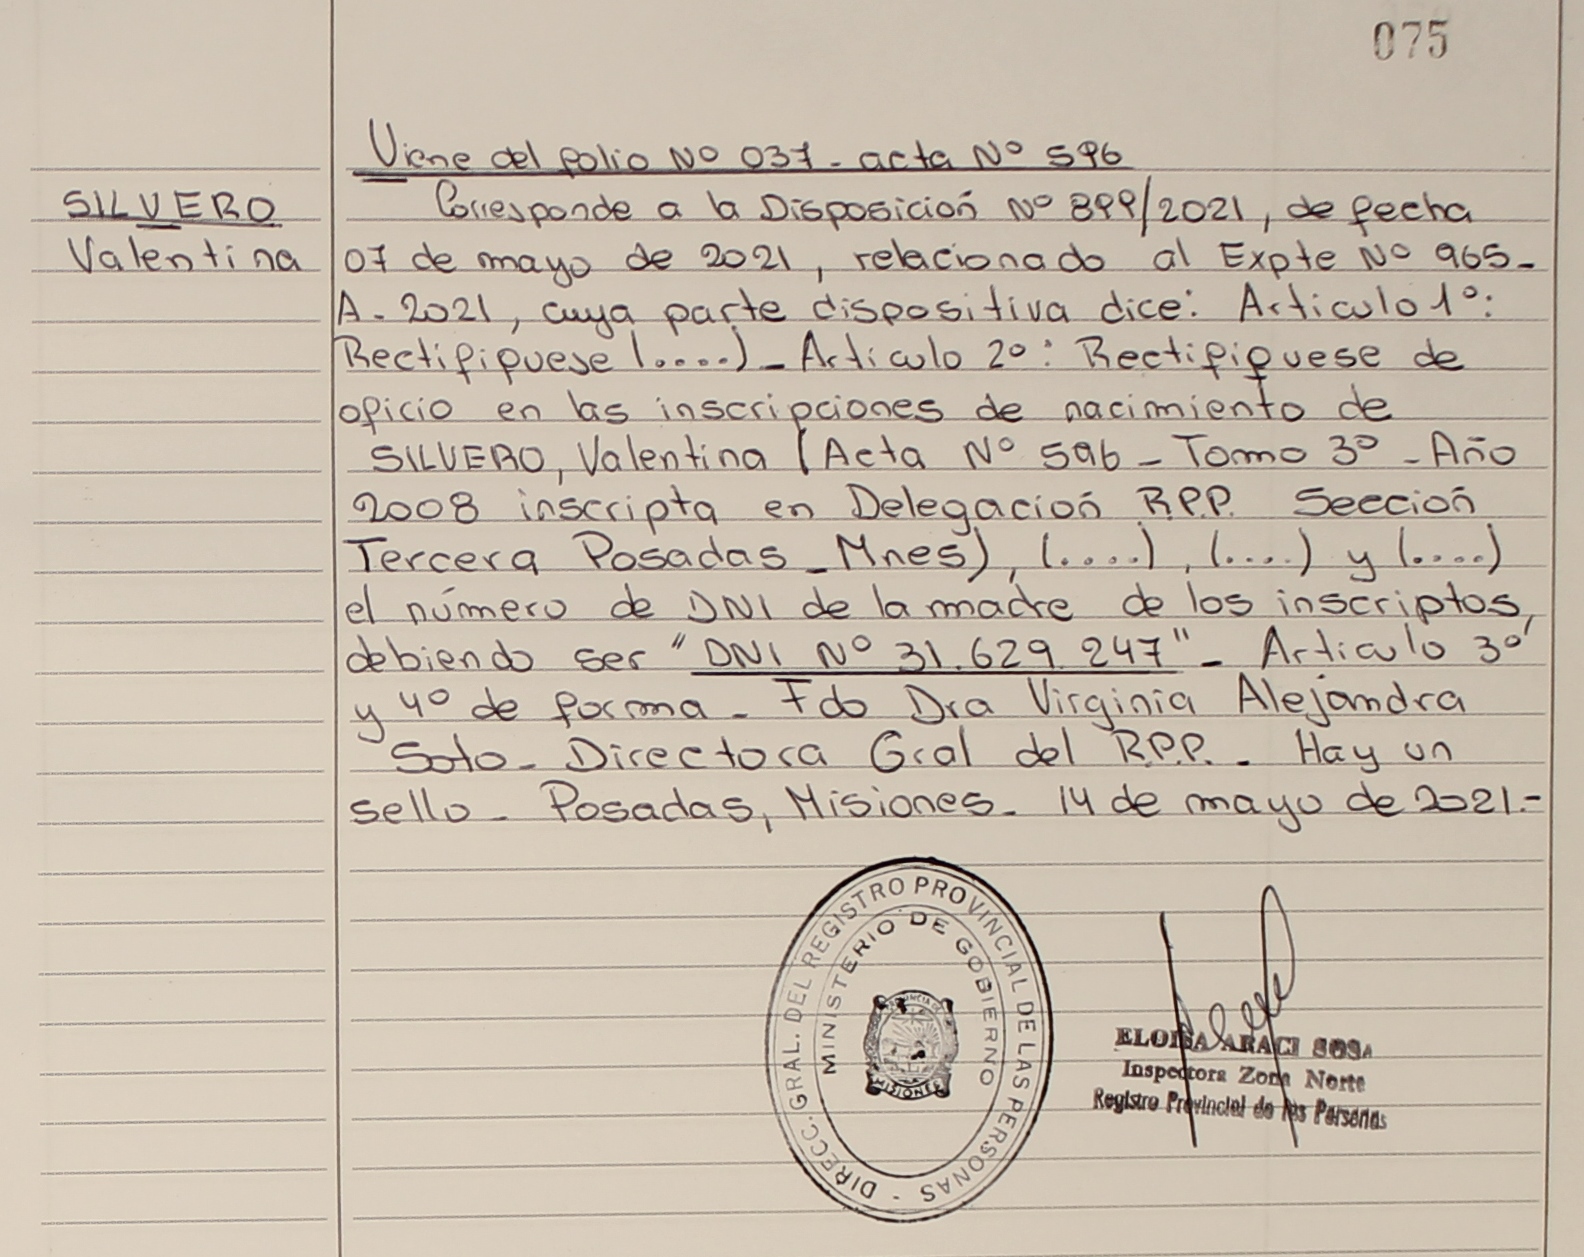 075
Viene del folio Nº 037 - acta Nº 596
SILVERO
Valentina
Corresponde a la Disposición Nº 899/2021, de fecha
07 de mayo de 2021, relacionado al Expte Nº 965-
A-2021, cuya parte dispositiva dice: Articulo 1º:
Rectifiquese (.....) - Artículo 2º: Rectifiquese de
oficio en las inscripciones de nacimiento de
SILVERO, Valentina (Acta Nº 596 - Tomo 3º - Año
2008 inscripta en Delegación R.P.P. Sección
Tercera Posadas - Mnes), (....), (....) y (....)
el número de DNI de la madre de los inscriptos,
debiendo ser "DNI Nº 31.629.247" - Articulo 3º
y 4º de forma - Fdo Dra Virginia Alejandra
Soto - Directora Gral del R.P.P. - Hay un
sello - Posadas, Misiones - 14 de mayo de 2021.-
DIRECC. GRAL. DEL REGISTRO PROVINCIAL DE LAS PERSONAS -
MINISTERIO DE GOBIERNO
PROVINCIA DE
MISIONES
ELOISA ARACI SOSA
Inspectora Zona Norte
Registro Provincial de las Personas